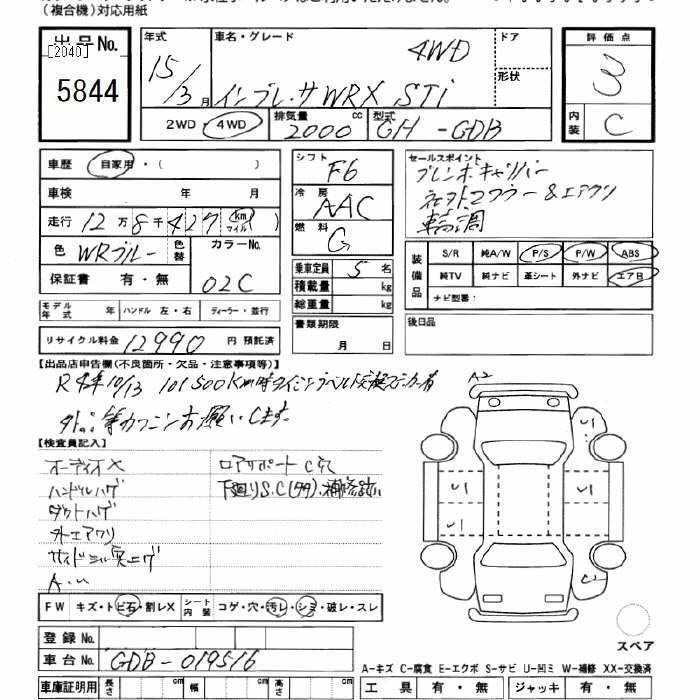 （複合機）対応用紙
出品No. [2040] 5844
年式 15/3月
車名・グレード インプレッサWRX STi 4WD
ドア
形状
2WD・4WD
排気量 2000 cc
型式 GH-GDB
評価点 3
内装 C
車歴 自家用・( )
車検 年 月
走行 12万8千427 (km マイル)
色 WRブルー
色替
カラーNo. 02C
保証書 有・無
モデル年式 年
ハンドル 左・右
ディーラー・並行
リサイクル料金 12990 円 預託済
シフト F6
冷房 AAC
燃料 G
乗車定員 5 名
積載量 kg
総重量 kg
書類期限 月 日
セールスポイント
ブレンボキャリパー
マフラー&エアクリ
装備品
S/R 純A/W P/S P/W ABS
純TV 純ナビ 革シート 外ナビ エアB
ナビ型番：
後日品
【出品店申告欄(不良箇所・欠品・注意事項等)】
10/13 101500km時タイミングベルト交換ステッカー有
【検査員記入】
オーディオX
ハンドルハゲ
ダクトハゲ
外エアクリ
A.W
ロアサポートC穴
下廻りS.C
FW キズ・トビ石・割レX
シート内装 コゲ・穴・汚レ・シミ・破レ・スレ
登録No.
車台No. GDB-019516
車庫証明用 長さ cm 幅 cm 高さ cm
A2
U1
U1
U1
U1
スペア
A-キズ C-腐食 E-エクボ S-サビ U-凹ミ W-補修 XX-交換済
工具 有・無 ジャッキ 有・無